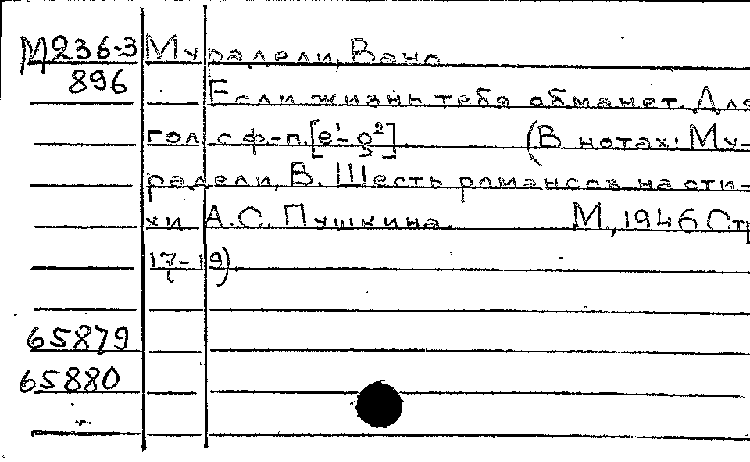 М236-3 Мурадели, Вано
896
Если жизнь тебя обманет. Для
гол. с ф-п. [e¹-g²] (В нотах: Му-
радели, В. Шесть романсов на сти-
хи А.С. Пушкина. М., 1946 Стр
17-19).
65879
65880